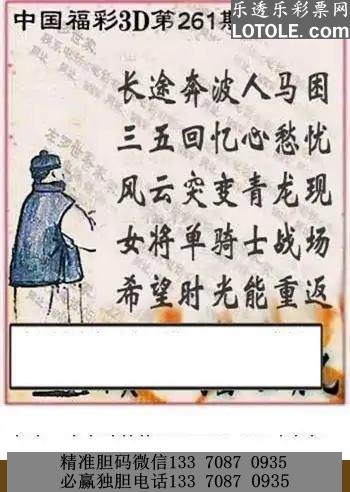 中国福彩3D第261期
乐透乐彩票网
LOTOLE.COM
长途奔波人马困
三五回忆心愁忧
风云突变青龙现
女将单骑士战场
希望时光能重返
精准胆码微信133 7087 0935
必赢独胆电话133 7087 0935